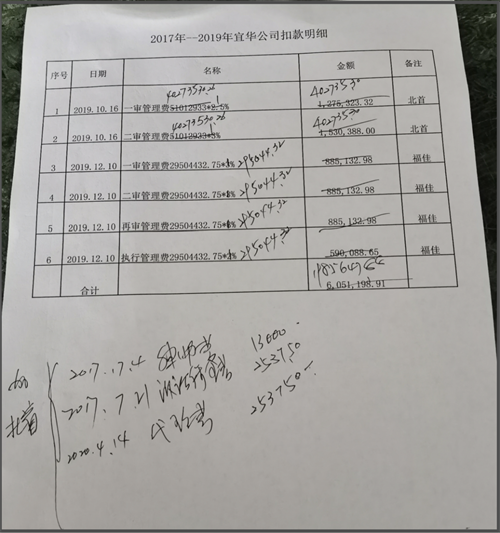 2017年--2019年宜华公司扣款明细
序号 日期 名称 金额 备注
40273530.26 40273530
1 2019.10.16 一审管理费51012933*2.5% 1,275,323.32 北首
40273530.26 40273530
2 2019.10.16 二审管理费51012933*3% 1,530,388.00 北首
3 2019.12.10 一审管理费29504432.75* 295044.32 885,132.98 福佳
4 2019.12.10 二审管理费29504432.75* 295044.32 885,132.98 福佳
5 2019.12.10 再审管理费29504432.75* 295044.32 885,132.98 福佳
6 2019.12.10 执行管理费29504432.75* 295044.32 590,088.65 福佳
合计 6,051,198.91
2017.17.4 律师费 13000.
北首 2017.7.21 253750
2020.4.14 代理费 253750